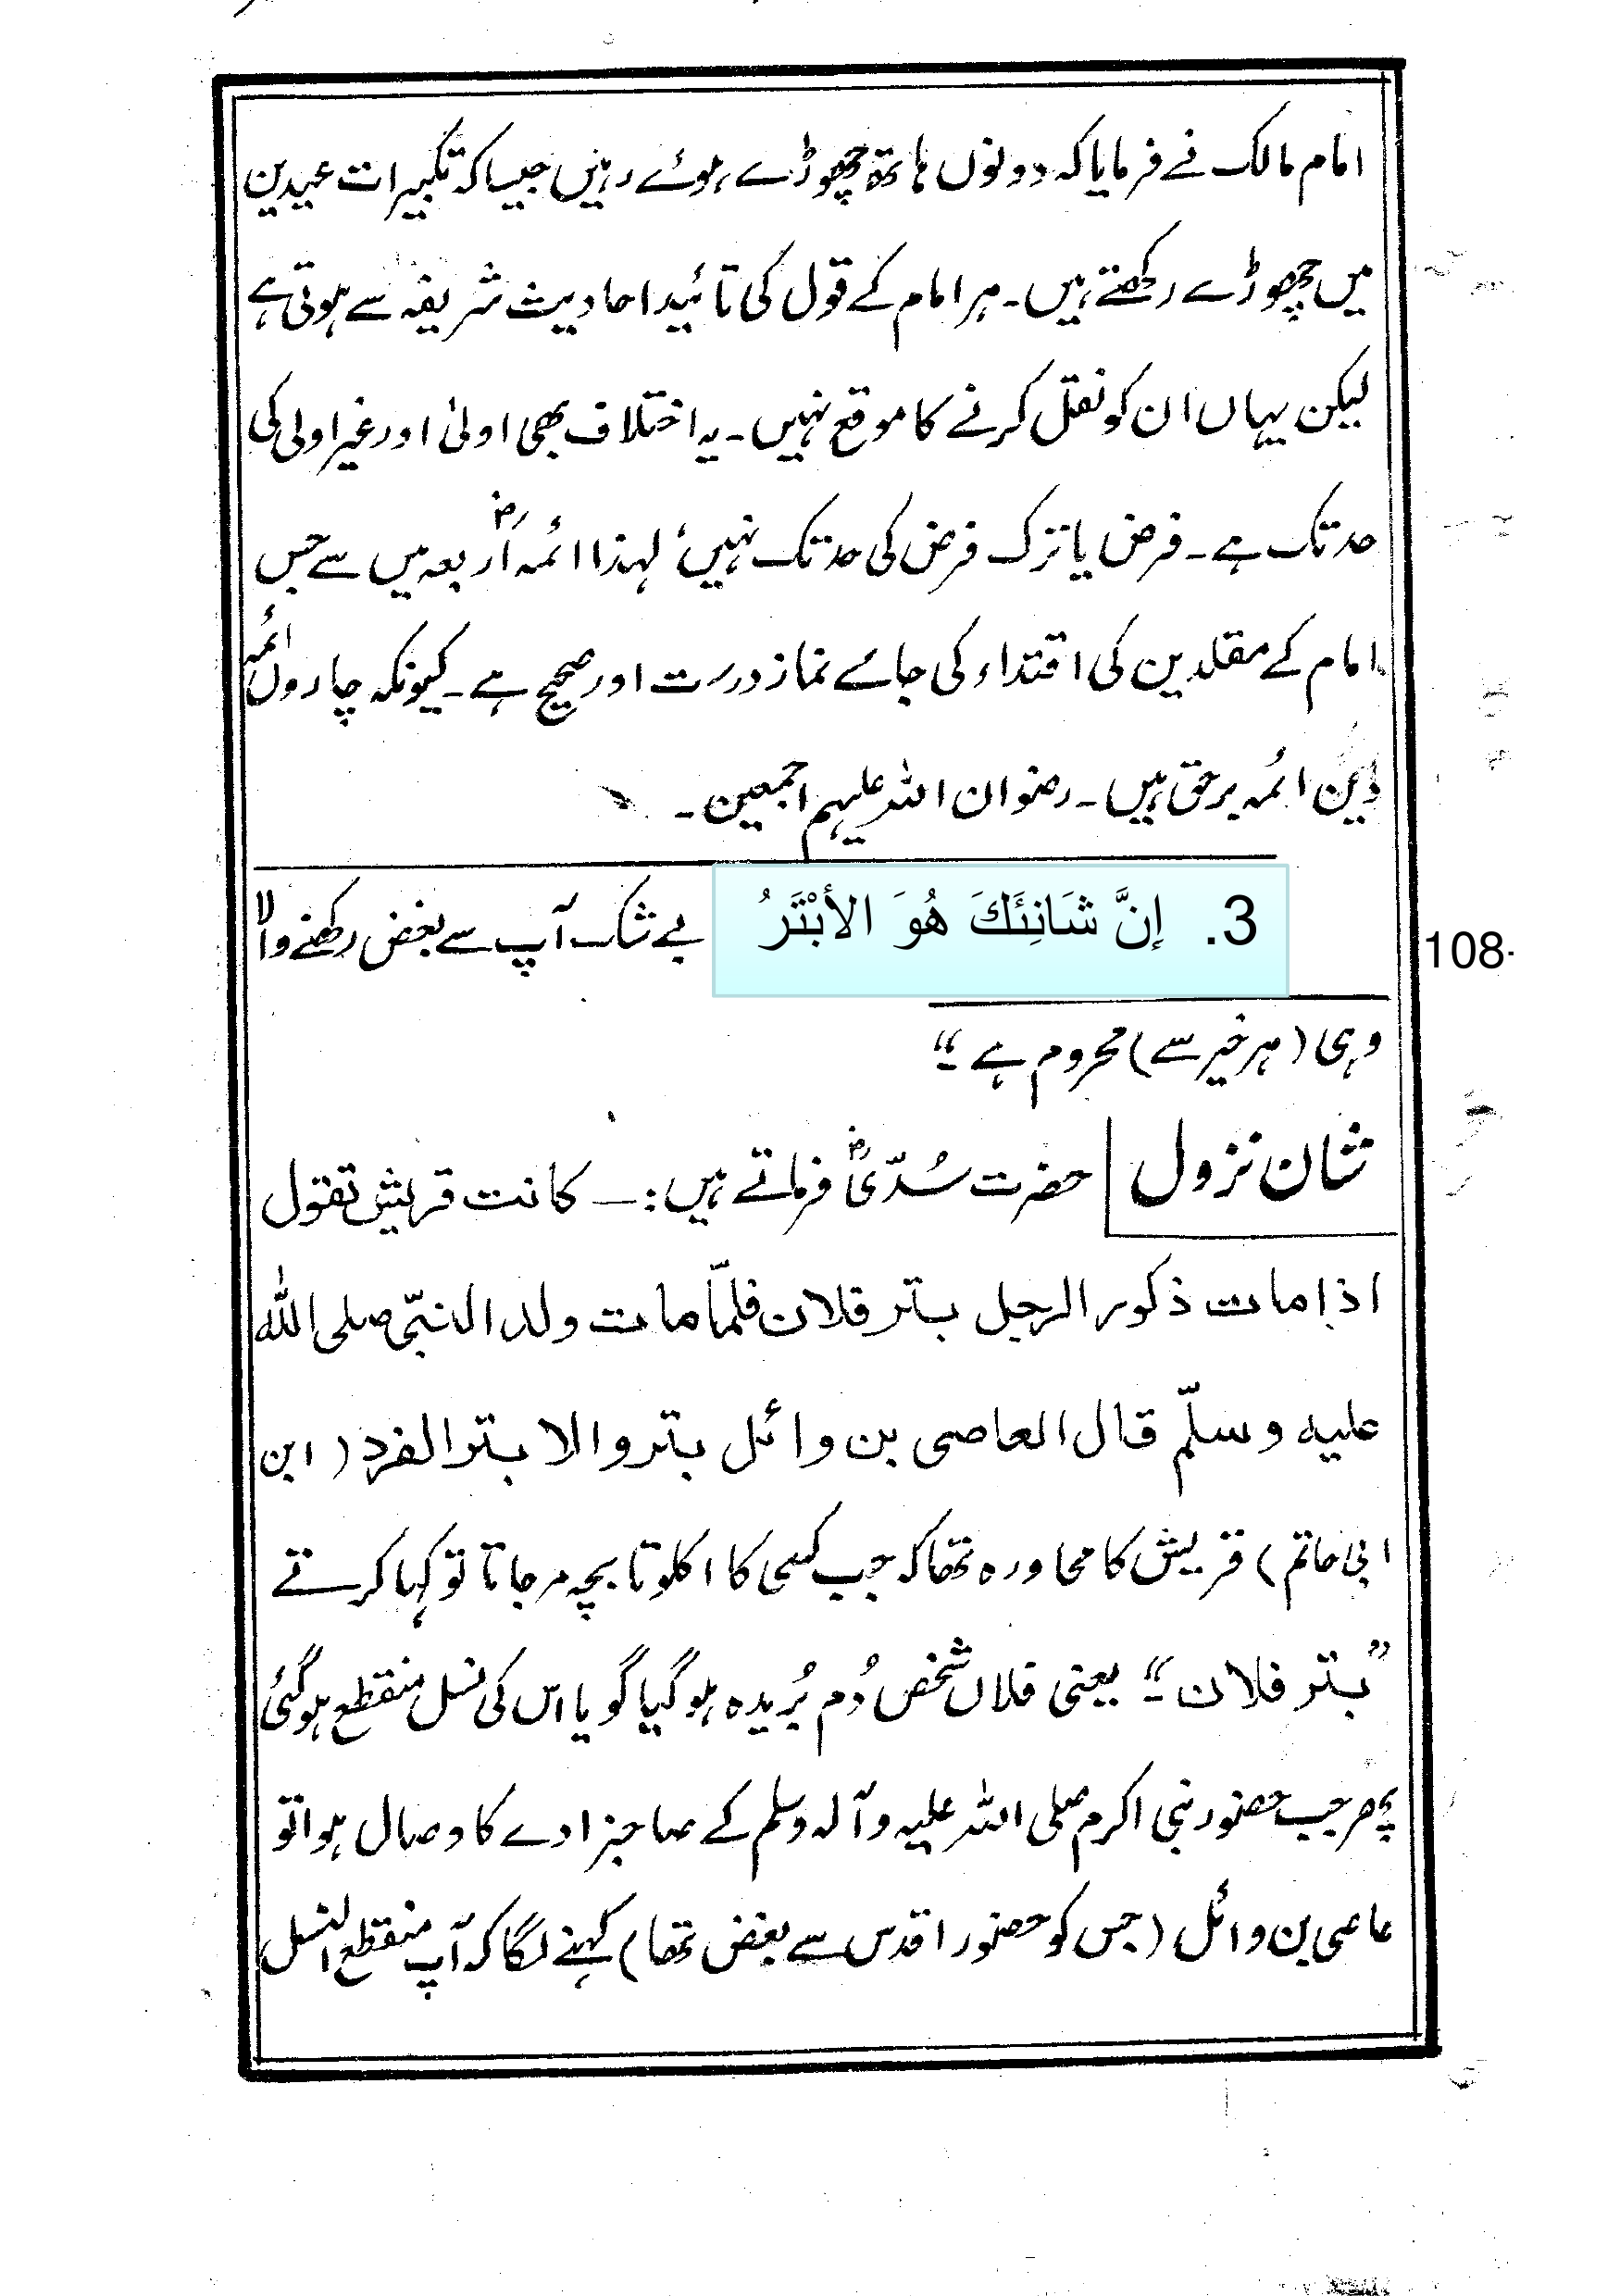 امام مالک نے فرمایا کہ دونوں ہاتھ چھوڑے ہوئے رہیں جیسا کہ تکبیرات عیدین
میں چھوڑے رکھتے ہیں۔ ہر امام کے قول کی تائید احادیث شریفہ سے ہوتی ہے
لیکن یہاں ان کو نقل کرنے کا موقع نہیں۔ یہ اختلاف بھی اولیٰ اور غیر اولی کی
حد تک ہے۔ فرض یا ترک فرض کی حد تک نہیں، لہذا ائمہ اربعہؓ میں سے جس
امام کے مقلدین کی اقتداء کی جائے نماز درست اور صحیح ہے۔ کیونکہ چاروں ائمہ
دین ائمہ برحق ہیں۔ رضوان اللہ علیہم اجمعین۔
3. إِنَّ شَانِئَكَ هُوَ الأَبْتَرُ بے شک آپ سے بغض رکھنے والا
108-
وہی (ہر خیر سے) محروم ہے“۔
شان نزول حضرت سُدّیؓ فرماتے ہیں:۔ کانت قریش تقول
اذا مات ذکور الرجل بتر فلان فلمّا مات ولد النبّی صلی اللہ
علیہ وسلّم قال العاصی بن وائل بتر والابتر الفرد (ابن
ابی حاتم) قریش کا محاورہ تھا کہ جب کسی کا اکلوتا بچہ مرجاتا تو کہا کرتے
”بتر فلان“۔ یعنی فلاں شخص دُم بُریدہ ہو گیا گویا اس کی نسل منقطع ہو گئی
پھر جب حضور نبی اکرم صلی اللہ علیہ وآلہ وسلم کے صاحبزادے کا وصال ہوا تو
عاصی بن وائل (جس کو حضور اقدس سے بغض تھا) کہنے لگا کہ آپ منقطع النسل